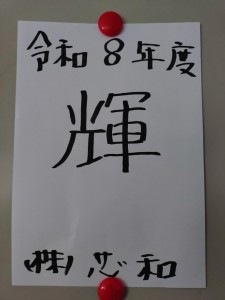 令和8年度
輝
(株)忍和